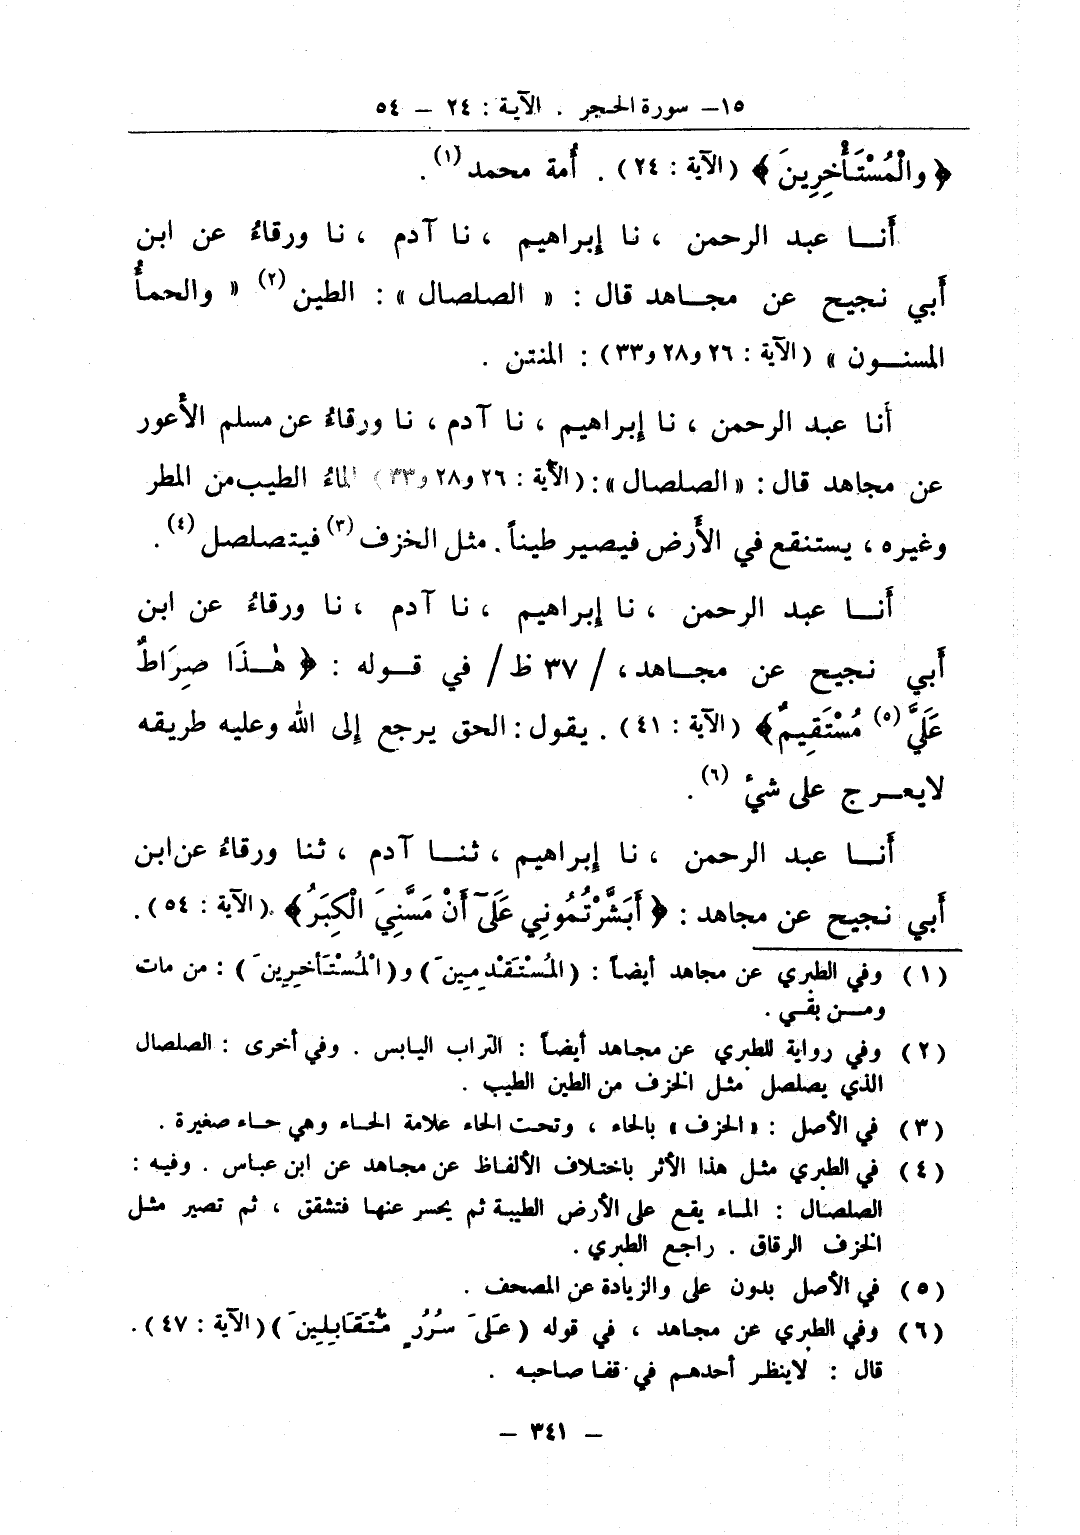 ١٥ – سورة الحجر . الآية : ٢٤ – ٥٤
﴿ والْمُسْتَأْخِرِينَ ﴾ (الآية : ٢٤) . أُمة محمد (١) .
أَنـا عبد الرحمن ، نا إبراهيم ، نا آدم ، نا ورقاءُ عن ابن
أَبي نجيح عن مجاهد قال : « الصلصال » : الطين (٢) « والحمأُ
المسنون » (الآية : ٢٦ و٢٨ و٣٣) : المنتن .
أَنا عبد الرحمن ، نا إبراهيم ، نا آدم ، نا ورقاءُ عن مسلم الأَعور
عن مجاهد قال : « الصلصال » : (الآية : ٢٦ و٢٨ و٣٣) الماءُ الطيب من المطر
وغيره ، يستنقع في الأَرض فيصير طيناً . مثل الخزف (٣) فيتصلصل (٤) .
أَنـا عبد الرحمن ، نا إبراهيم ، نا آدم ، نا ورقاءُ عن ابن
أَبي نجيح عن مجاهد ، / ٣٧ ظ / في قوله : ﴿ هٰذَا صِرَاطٌ
عَلَيَّ (٥) مُسْتَقِيمٌ ﴾ (الآية : ٤١) . يقول : الحق يرجع إلى الله وعليه طريقه
لايعرج على شيءٍ (٦) .
أَنـا عبد الرحمن ، نا إبراهيم ، ثنا آدم ، ثنا ورقاءُ عن ابن
أَبي نجيح عن مجاهد : ﴿ أَبَشَّرْتُمُونِي عَلَىٓ أَنْ مَسَّنِيَ الْكِبَرُ ﴾ . (الآية : ٥٤) .
(١) وفي الطبري عن مجاهد أيضاً : (المُسْتَقْدِمِينَ) و(الْمُسْتَأخِرِينَ) : من مات
ومن بقي .
(٢) وفي رواية للطبري عن مجاهد أيضاً : التراب اليابس . وفي أخرى : الصلصال
الذي يصلصل مثل الخزف من الطين الطيب .
(٣) في الأصل : « الحزف » بالحاء ، وتحت الحاء علامة الحاء وهي حاء صغيرة .
(٤) في الطبري مثل هذا الأثر باختلاف الألفاظ عن مجاهد عن ابن عباس . وفيه :
الصلصال : الماء يقع على الأرض الطيبة ثم يحسر عنها فتشقق ، ثم تصير مثل
الخزف الرقاق . راجع الطبري .
(٥) في الأصل بدون على والزيادة عن المصحف .
(٦) وفي الطبري عن مجاهد ، في قوله (عَلَىَ سُرُرٍ مُّتَقَابِلِينَ) (الآية : ٤٧) .
قال : لاينظر أحدهم في قفا صاحبه .
– ٣٤١ –